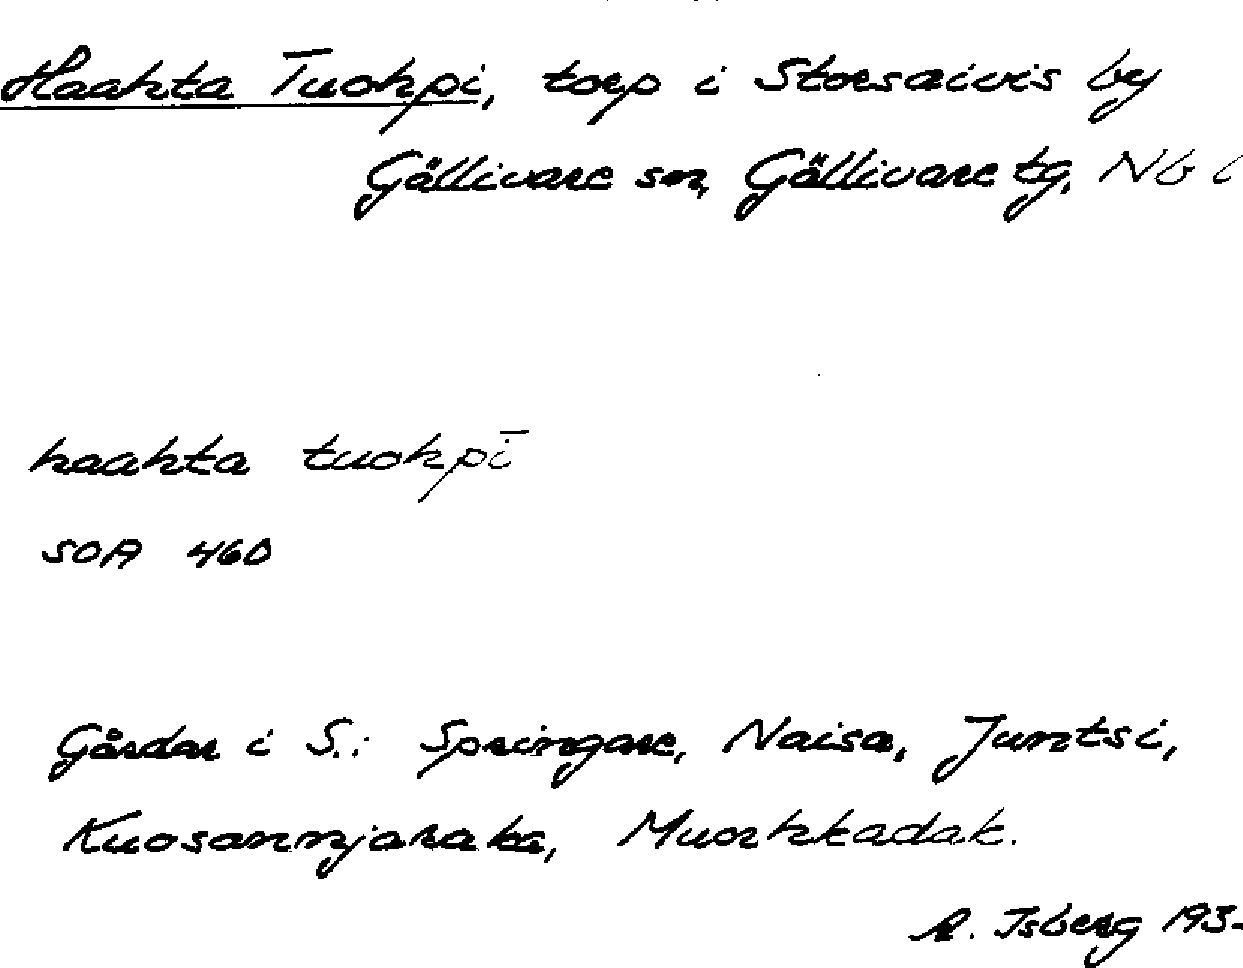 Haahta Tuohpi, torp i Storsaivis by
Gällivare sn, Gällivare tg, Nb l
haahta tuohpī
SOA 460
Gårdar i S.: Springare, Naisa, Juntsi,
Kuosannjaraka, Muorhkadak.
A. Isberg 193-